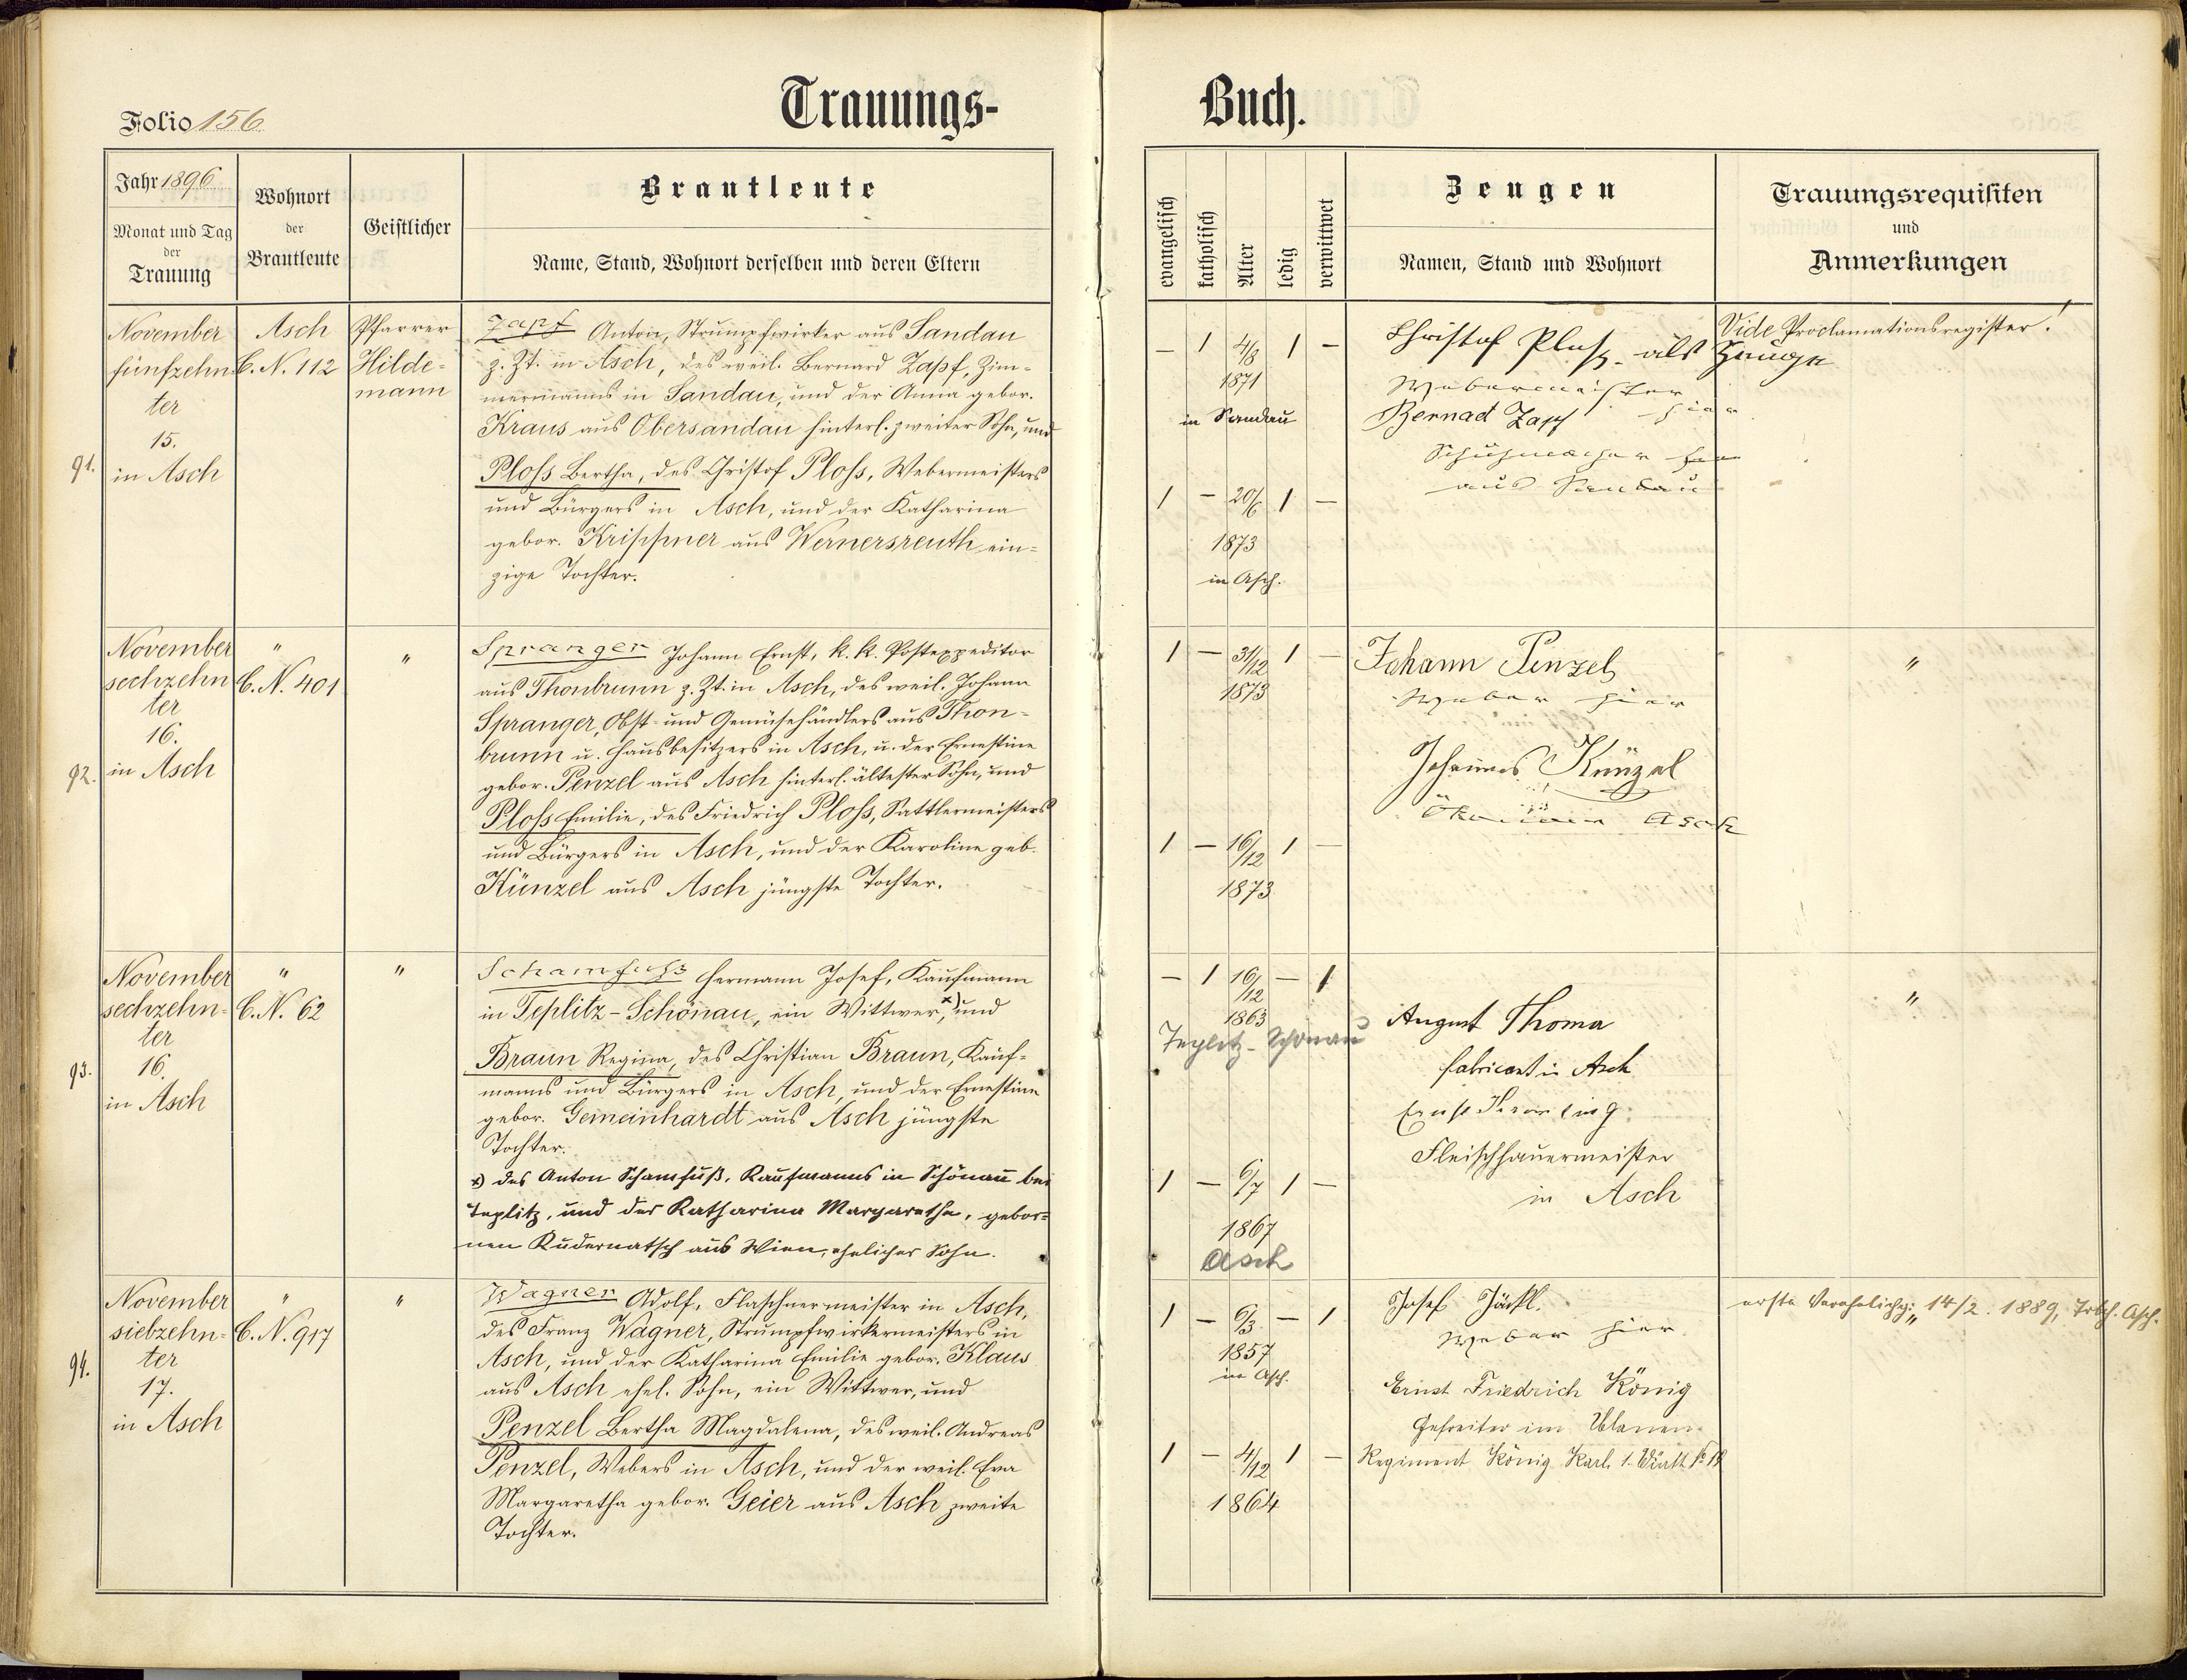 Folio 156
Trauungs-
Buch.
Jahr 1896
Monat und Tag
der
Trauung
Wohnort
der
Brautleute
Geistlicher
Brautleute
Name, Stand, Wohnort derselben und deren Eltern
evangelisch
katholisch
Alter
ledig
verwittwet
Zeugen
Namen, Stand und Wohnort
Trauungsrequisiten
und
Anmerkungen
91.
November
fünfzehn-
ter
15.
in Asch
Asch
C. N. 112
Pfarrer
Hilde-
mann
Zapf Anton, Strumpfwirker aus Sandau
z. Zt. in Asch, des weil. Bernard Zapf, Zim-
mermanns in Sandau, und der Anna gebor.
Kraus aus Obersandau hinterl. zweiter Sohn, und
Ploss Bertha, des Christof Ploss, Webermeisters
und Bürgers in Asch, und der Katharina
gebor. Krippner aus Wernersreuth ein-
zige Tochter.
— 1 4/8 1 —
1871
in Sandau
1 — 20/6 1 —
1873
in Asch.
Christof Ploss als Zeuge
Webermeister hier
Bernad Zapf
Schuhmacher
aus Sandau
Vide Proclamationsregister!
92.
November
sechzehn
ter
16.
in Asch
"
C. N. 401
"
Spranger Johann Ernst, k. k. Postexpeditor
aus Thonbrunn z. Zt. in Asch, des weil. Johann
Spranger, Obst- und Gemüsehändlers aus Thon-
brunn u. Hausbesitzers in Asch, u. der Ernestine
gebor. Penzel aus Asch hinterl. ältester Sohn, und
Ploss Emilie, des Friedrich Ploss, Sattlermeisters
und Bürgers in Asch, und der Karoline geb.
Künzel aus Asch jüngste Tochter.
1 — 31/12 1 —
1873
1 — 16/12 1 —
1873
Johann Penzel
Weber hier
Johannes Künzel
Ökonom Asch
"
93.
November
sechzehn-
ter
16.
in Asch
"
C. N. 62
"
Schamfuss Hermann Josef, Kaufmann
in Teplitz-Schönau, ein Wittwer, x) und
Braun Regina, des Christian Braun, Kauf-
manns und Bürgers in Asch, und der Ernestine
gebor. Gemeinhardt aus Asch jüngste
Tochter.
x) des Anton Schamfuß, Kaufmanns in Schönau bei
Teplitz, und der Katharina Margaretha, gebor-
nen Kudernatsch aus Wien, ehelicher Sohn.
— 1 16/12 — 1
1863
Teplitz-Schönau
1 — 6/7 1 —
1867
Asch
August Thoma
fabricant in Asch
Ernst
Fleischhauermeister
in Asch
"
94.
November
siebzehn-
ter
17.
in Asch
"
C. N. 917
"
Wagner Adolf, Flaschnermeister in Asch,
des Franz Wagner, Strumpfwirkermeisters in
Asch, und der Katharina Emilie gebor. Klaus
aus Asch ehel. Sohn, ein Wittwer, und
Penzel Bertha Magdalena, des weil. Andreas
Penzel, Webers in Asch, und der weil. Eva
Margaretha gebor. Geier aus Asch zweite
Tochter.
1 — 6/3 — 1
1857
in Asch.
1 — 4/12 1 —
1864
Josef Jäckl.
Weber hier
Ernst Friedrich König
Gefreiter im Ulanen-
Regiment König Karl 1. Württ. No 19
erste Verehelichg: 14/2. 1889, Trbch. Asch.